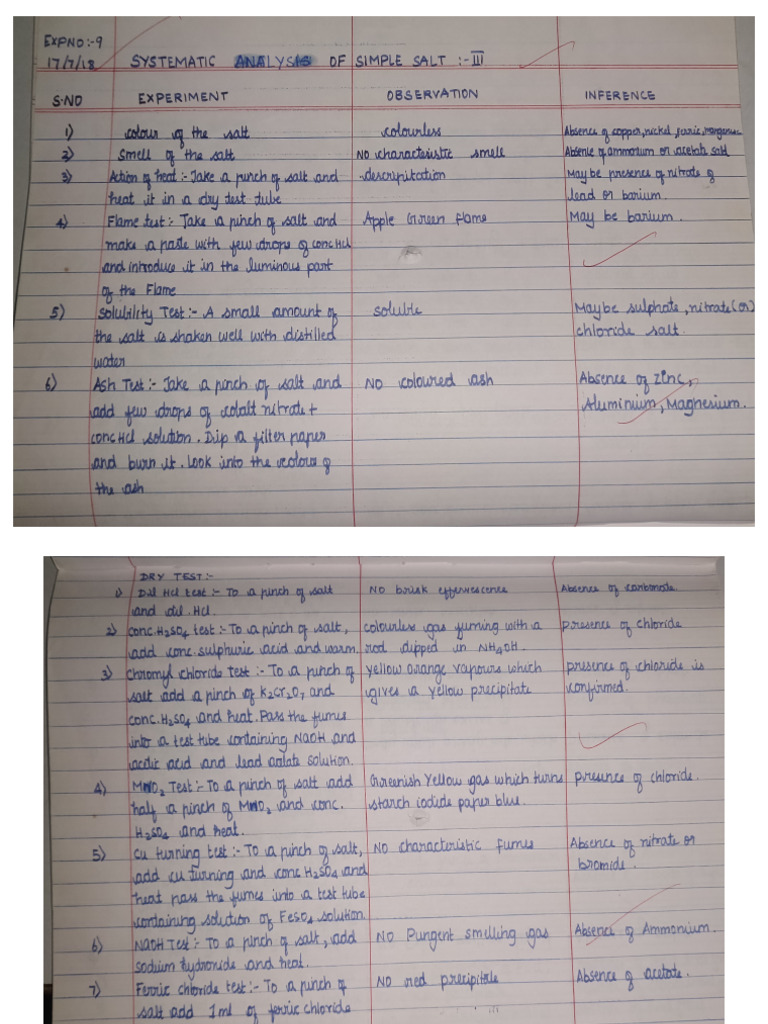 EXPNO:-9
17/7/18 SYSTEMATIC ANALYSIS OF SIMPLE SALT :- III
S.NO EXPERIMENT OBSERVATION INFERENCE
1) colour of the salt colourless Absence of copper, nickel, ferric, manganese
2) Smell of the salt NO characteristic smell Absence of ammonium or acetate salt
3) Action of heat :- Take a pinch of salt and -descripitation May be presence of nitrate of
heat it in a dry test tube lead or barium.
4) Flame test :- Take a pinch of salt and Apple Green flame May be barium.
make a paste with few drops of conc Hcl
and introduce it in the luminous part
of the Flame
5) Solubility Test :- A small amount of soluble Maybe sulphate, nitrate (or)
the salt is shaken well with distilled chloride salt.
water
6) Ash Test :- Take a pinch of salt and NO coloured ash Absence of zinc,
add few drops of cobalt nitrate + Aluminium, Magnesium.
conc Hcl solution. Dip a filter paper
and burn it. Look into the colour of
the ash
DRY TEST :-
1) Dil Hcl test :- To a pinch of salt NO brisk effervescence Absence of carbonate.
and dil. Hcl.
2) conc. H2SO4 test :- To a pinch of salt, colourless gas fuming with a presence of chloride
add conc. sulphuric acid and warm. rod dipped in NH4OH.
3) Chromyl chloride test :- To a pinch of yellow orange vapours which presence of chloride is
salt add a pinch of K2Cr2O7 and gives a yellow precipitate confirmed.
conc. H2SO4 and heat. Pass the fumes
into a test tube containing NaOH and
acetic acid and lead acetate solution.
4) MnO2 Test :- To a pinch of salt add Greenish Yellow gas which turns presence of chloride.
half a pinch of MnO2 and conc. starch iodide paper blue.
H2SO4 and heat.
5) Cu turning test :- To a pinch of salt, NO characteristic fumes Absence of nitrate or
add cu turning and conc H2SO4 and bromide.
heat pass the fumes into a test tube
containing solution of FeSO4 solution.
6) NaOH Test :- To a pinch of salt, add NO Pungent smelling gas Absence of Ammonium.
sodium hydroxide and heat.
7) Ferric chloride test :- To a pinch of NO red precipitate Absence of acetate.
salt add 1ml of ferric chloride